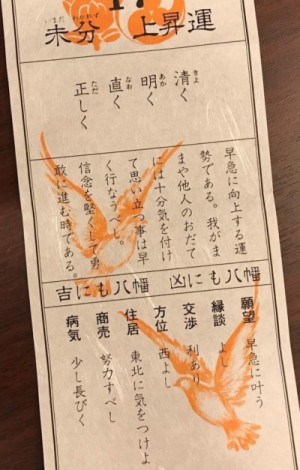 17
いまだ わかれず
未分 上昇運
清く
きよ
明く
あか
直く
なお
正しく
ただ
早急に向上する運
勢である。我がま
まや他人のおだて
には十分気を付け
て思い立つ事は早
く行なうべし。
信念を堅くして勇
敢に進む時である。
吉にも八幡 凶にも八幡
願望 早急に叶う
縁談 よし
交渉 利あり
方位 西よし
住居 東北に気をつけよ
商売 努力すべし
病気 少し長びく